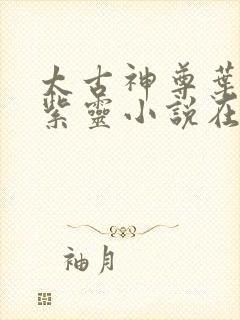 太古神尊葉
紫靈小說在
袖月